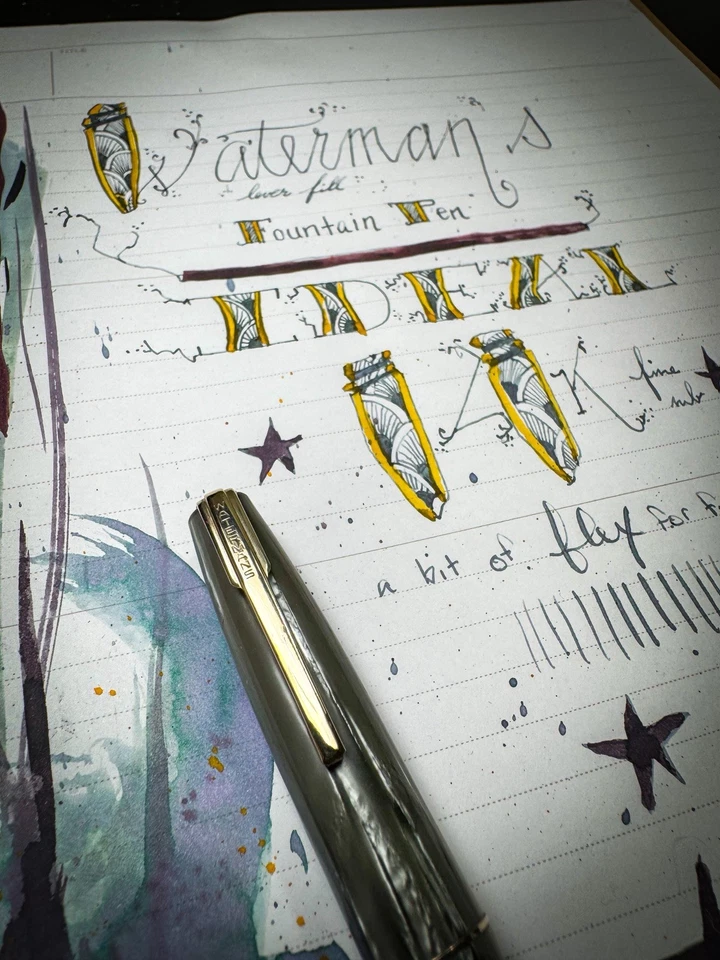 Waterman's
lever fill
Fountain Pen
IDEAL
14K
fine
nib
a bit of flex for
WATERMANS